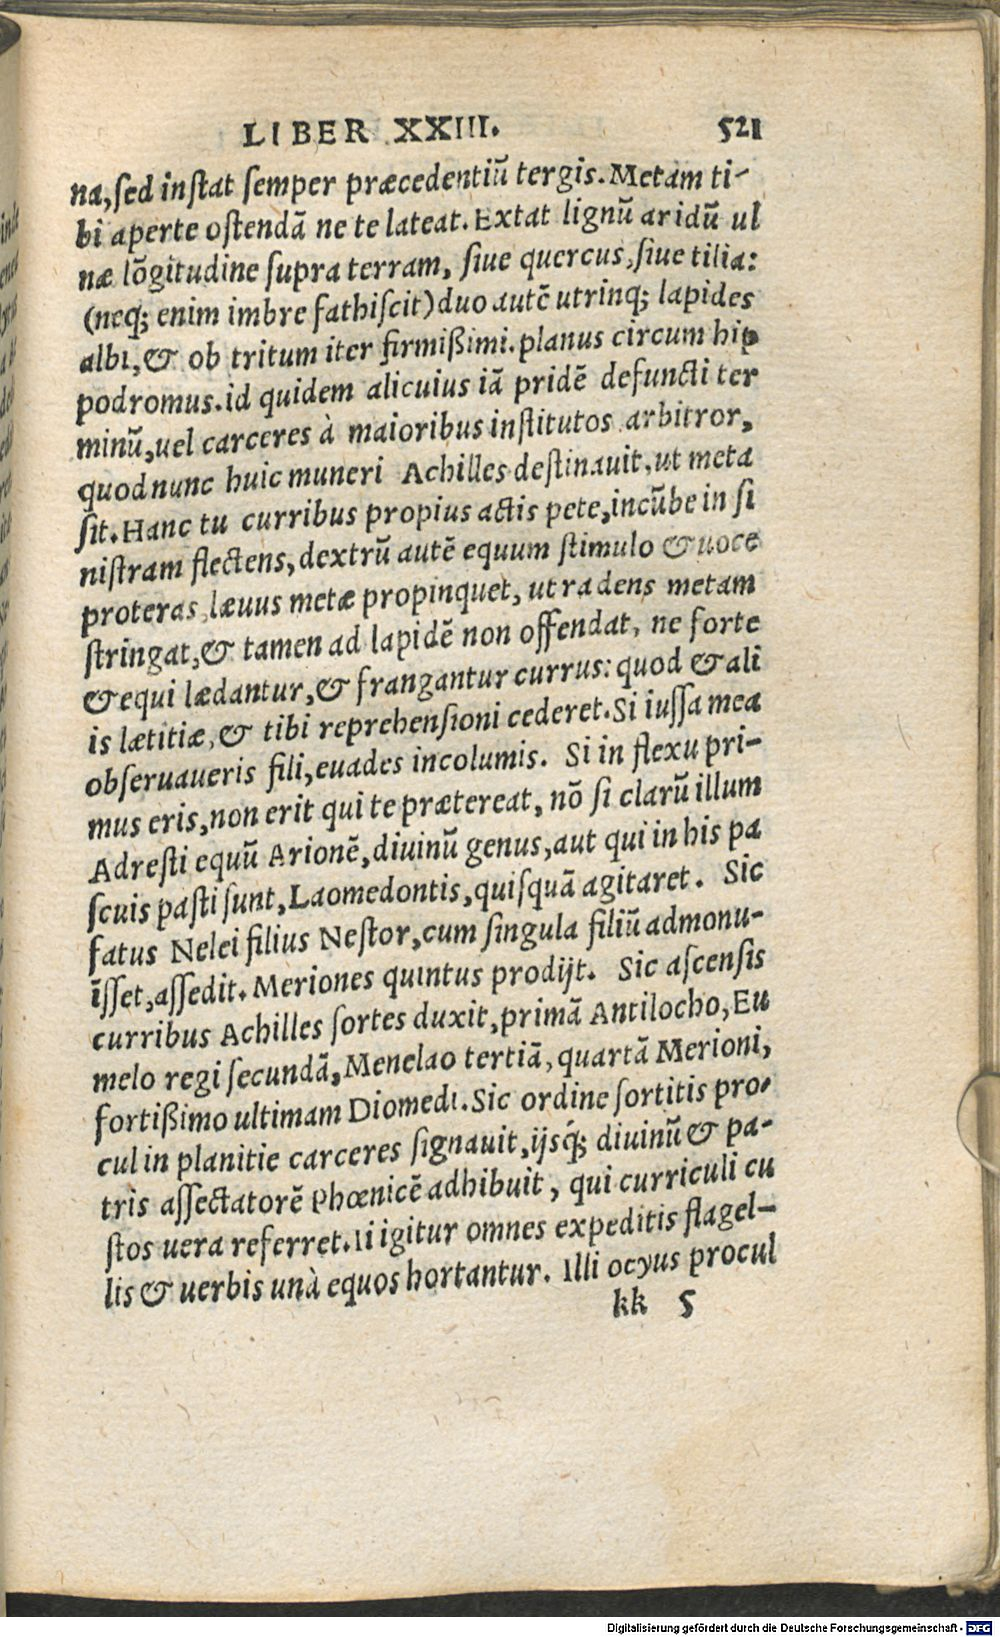 LIBER XXIII. 521
na, sed instat semper præcedentiū tergis. Metam ti-
bi aperte ostendā ne te lateat. Extat lignū aridū ul
næ lōgitudine supra terram, siue quercus, siue tilia:
(neq; enim imbre fathiscit) duo autē utrinq; lapides
albi, & ob tritum iter firmißimi. planus circum hip
podromus. id quidem alicuius iā pridē defuncti ter
minū, uel carceres à maioribus institutos arbitror,
quod nunc huic muneri Achilles destinauit, ut meta
sit. Hanc tu curribus propius actis pete, incūbe in si
nistram flectens, dextrū autē equum stimulo & uoce
proteras, læuus metæ propinquet, ut radens metam
stringat, & tamen ad lapidē non offendat, ne forte
& equi lædantur, & frangantur currus: quod & ali
is lætitiæ, & tibi reprehensioni cederet. Si iussa mea
obseruaueris fili, euades incolumis. Si in flexu pri-
mus eris, non erit qui te prætereat, nō si clarū illum
Adresti equū Arionē, diuinū genus, aut qui in his pa
scuis pasti sunt, Laomedontis, quisquā agitaret. Sic
fatus Nelei filius Nestor, cum singula filiū admonu-
īsset, assedit. Meriones quintus prodijt. Sic ascensis
curribus Achilles sortes duxit, primā Antilocho, Eu
melo regi secundā, Menelao tertiā, quartā Merioni,
fortißimo ultimam Diomedi. Sic ordine sortitis pro-
cul in planitie carceres signauit, ijsq́; diuinū & pa-
tris assectatorē Phœnicē adhibuit, qui curriculi cu
stos uera referret. Ii igitur omnes expeditis flagel-
lis & uerbis unà equos hortantur. Illi ocyus procul
kk 5
Digitalisierung gefördert durch die Deutsche Forschungsgemeinschaft - DFG